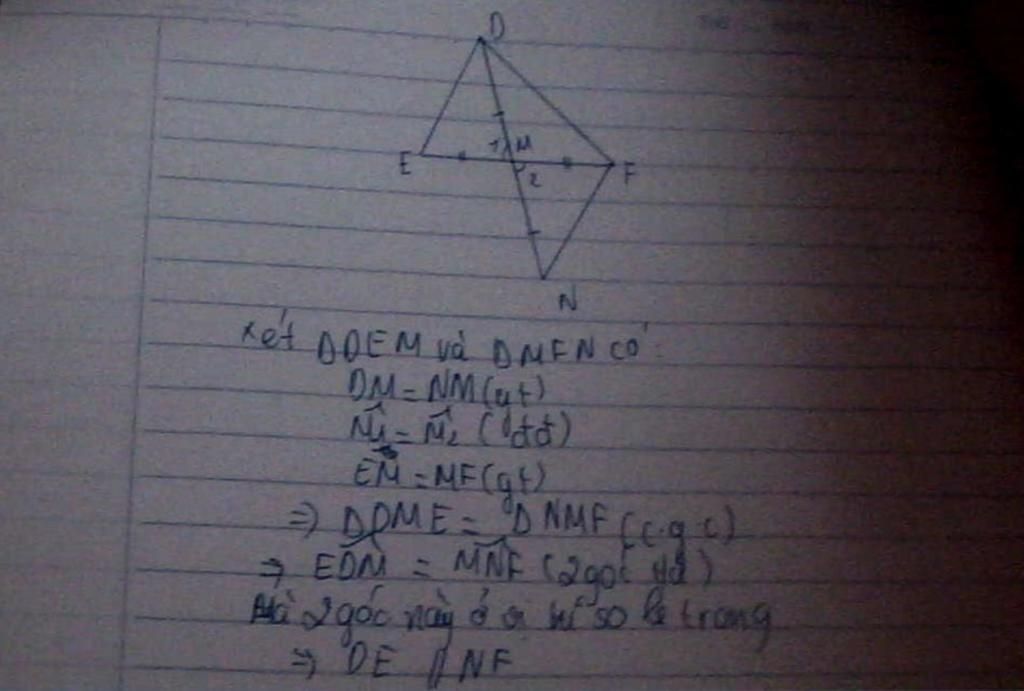 D
E
1
M
2
F
N
Xét ΔDEM và ΔMFN có:
DM = NM (gt)
M̂1 = M̂2 (đđ)
EM = MF (gt)
⇒ ΔDME = ΔNMF (c.g.c)
⇒ EDM = MNF (2 góc)
Mà 2 góc này ở vị trí so le trong
⇒ DE // NF